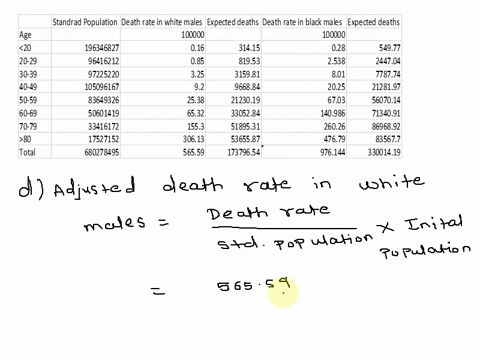 Standrad Population Death rate in white males Expected deaths Death rate in black males Expected deaths
Age 100000 100000
<20 196346827 0.16 314.15 0.28 549.77
20-29 96416212 0.85 819.53 2.538 2447.04
30-39 97225220 3.25 3159.81 8.01 7787.74
40-49 105096167 9.2 9668.84 20.25 21281.97
50-59 83649326 25.38 21230.19 67.03 56070.14
60-69 50601419 65.32 33052.84 140.986 71340.91
70-79 33416172 155.3 51895.31 260.26 86968.92
>80 17527152 306.13 53655.87 476.79 83567.7
Total 680278495 565.59 173796.54 976.144 330014.19
d) Adjusted death rate in white
males = Death rate / Std. population × Inital population
= 565.59